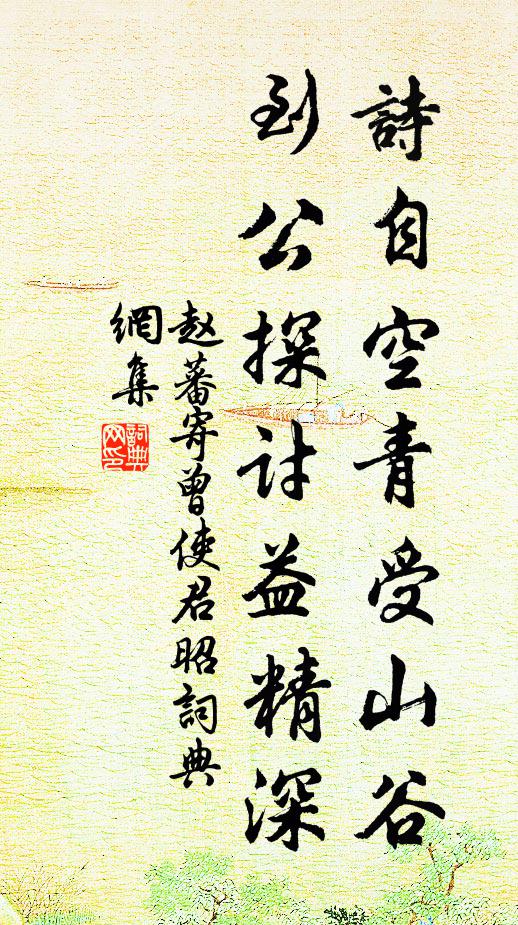 詩自空青受山谷
到公探討益精深
赵蕃寄曾使君昭詞典
網集
詞典
网印